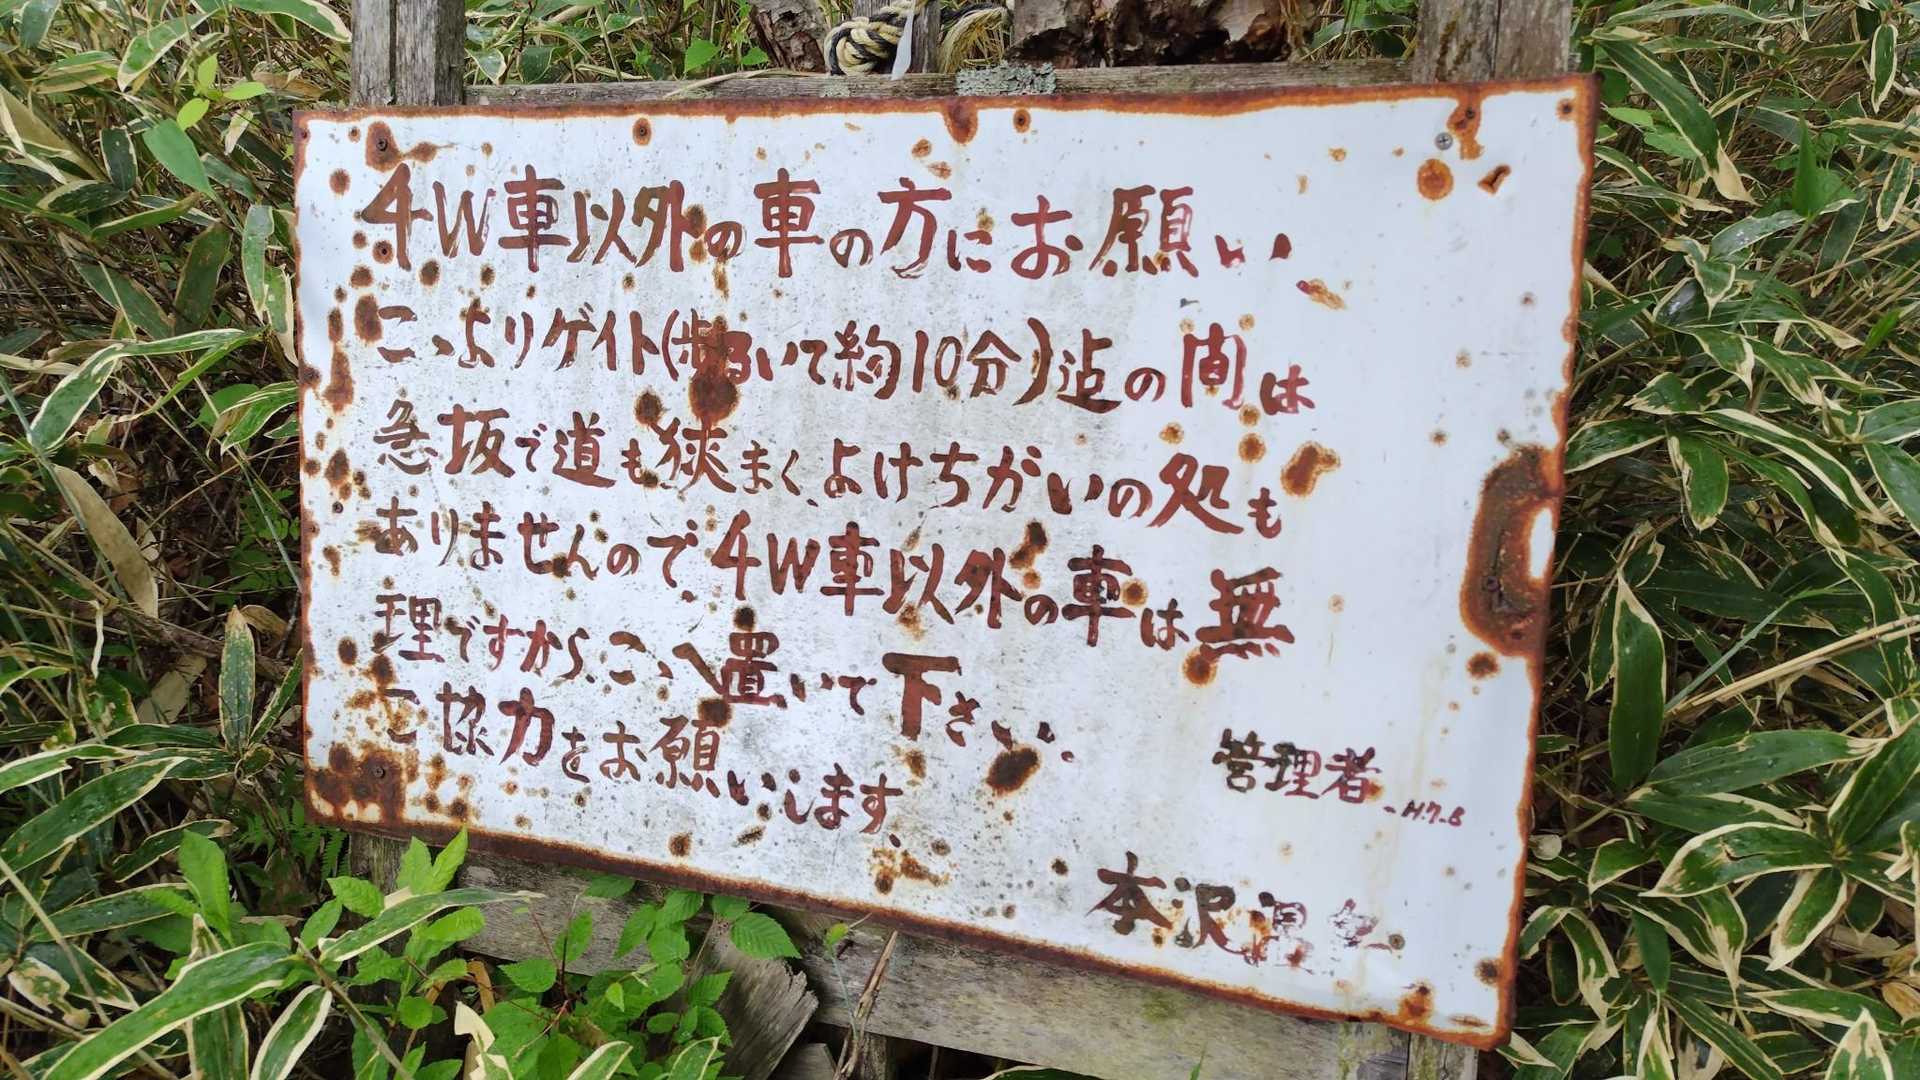 4W車以外の車の方にお願い
こゝよりゲイト(歩るいて約10分)迠の間は
急坂で道も狭まく、よけちがいの処も
ありませんので、4W車以外の車は無
理ですから、こゝへ置いて下さい。
ご協力をお願いします。
管理者 H.7.6
本沢温泉